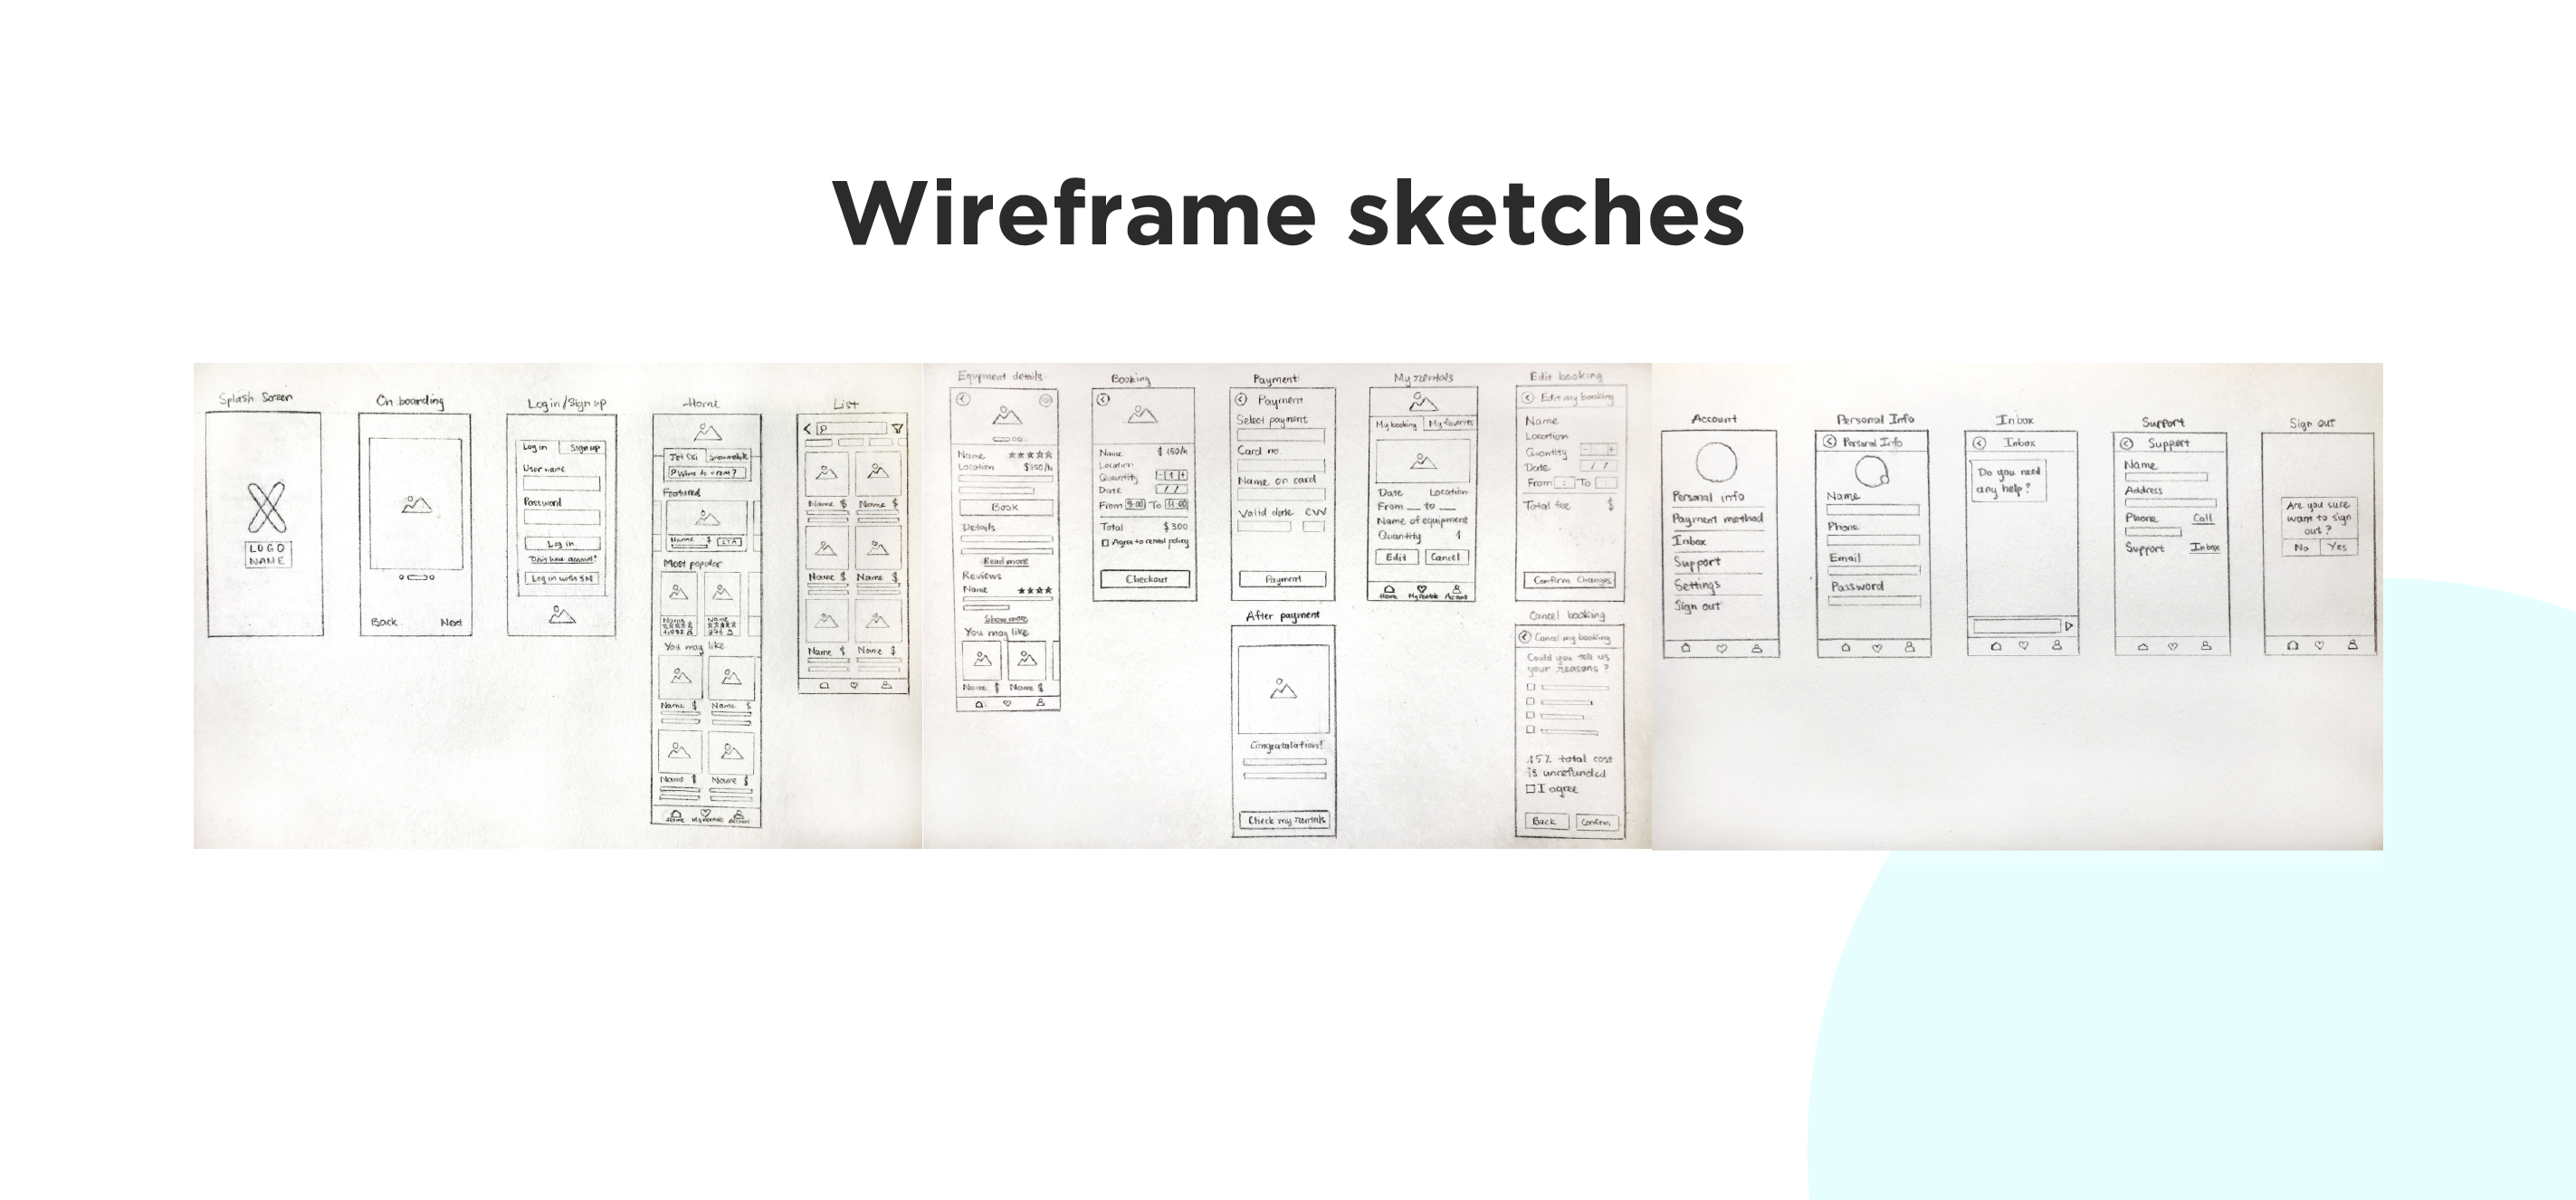 Wireframe sketches
Splash Screen
LOGO
NAME
On boarding
Back Next
Login/Sign up
Log in Sign up
User name
Password
Log in
Log in with SM
Home
Jet Ski Snowmobile
Where to rent?
Featured
Name $ CTA
Most popular
Name Name
You may like
Name $ Name $
Name $ Name $
Home My rentals Account
List
Name $ Name $
Name $ Name $
Name $ Name $
Equpment details
Name ★★★★★
Location $150/h
Book
Details
Read more
Reviews
Name ★★★★
Show more
You may like
Name $ Name $
Booking
Name $150/h
Location
Quantity - 1 +
Date / /
From 9:00 To 11:00
Total $300
Agree to rental policy
Checkout
Payment
Payment
Select payment
Card no.
Name on card
Valid date CVV
Payment
After payment
Congratulation!
Check my rentals
My rentals
My booking My favorites
Date Location
From __ to __
Name of equipment
Quantity 1
Edit Cancel
Home My rentals Account
Edit booking
Edit my booking
Name
Location
Quantity - +
Date / /
From : To :
Total fee $
Confirm Changes
Cancel booking
Cancel my booking
Could you tell us
your reasons?
15% total cost
is unrefunded
I agree
Back Confirm
Account
Personal info
Payment method
Inbox
Support
Settings
Sign out
Personal Info
Personal Info
Name
Phone
Email
Password
Inbox
Inbox
Do you need
any help?
Support
Support
Name
Address
Phone Call
Support Inbox
Sign out
Are you sure
want to sign
out?
No Yes